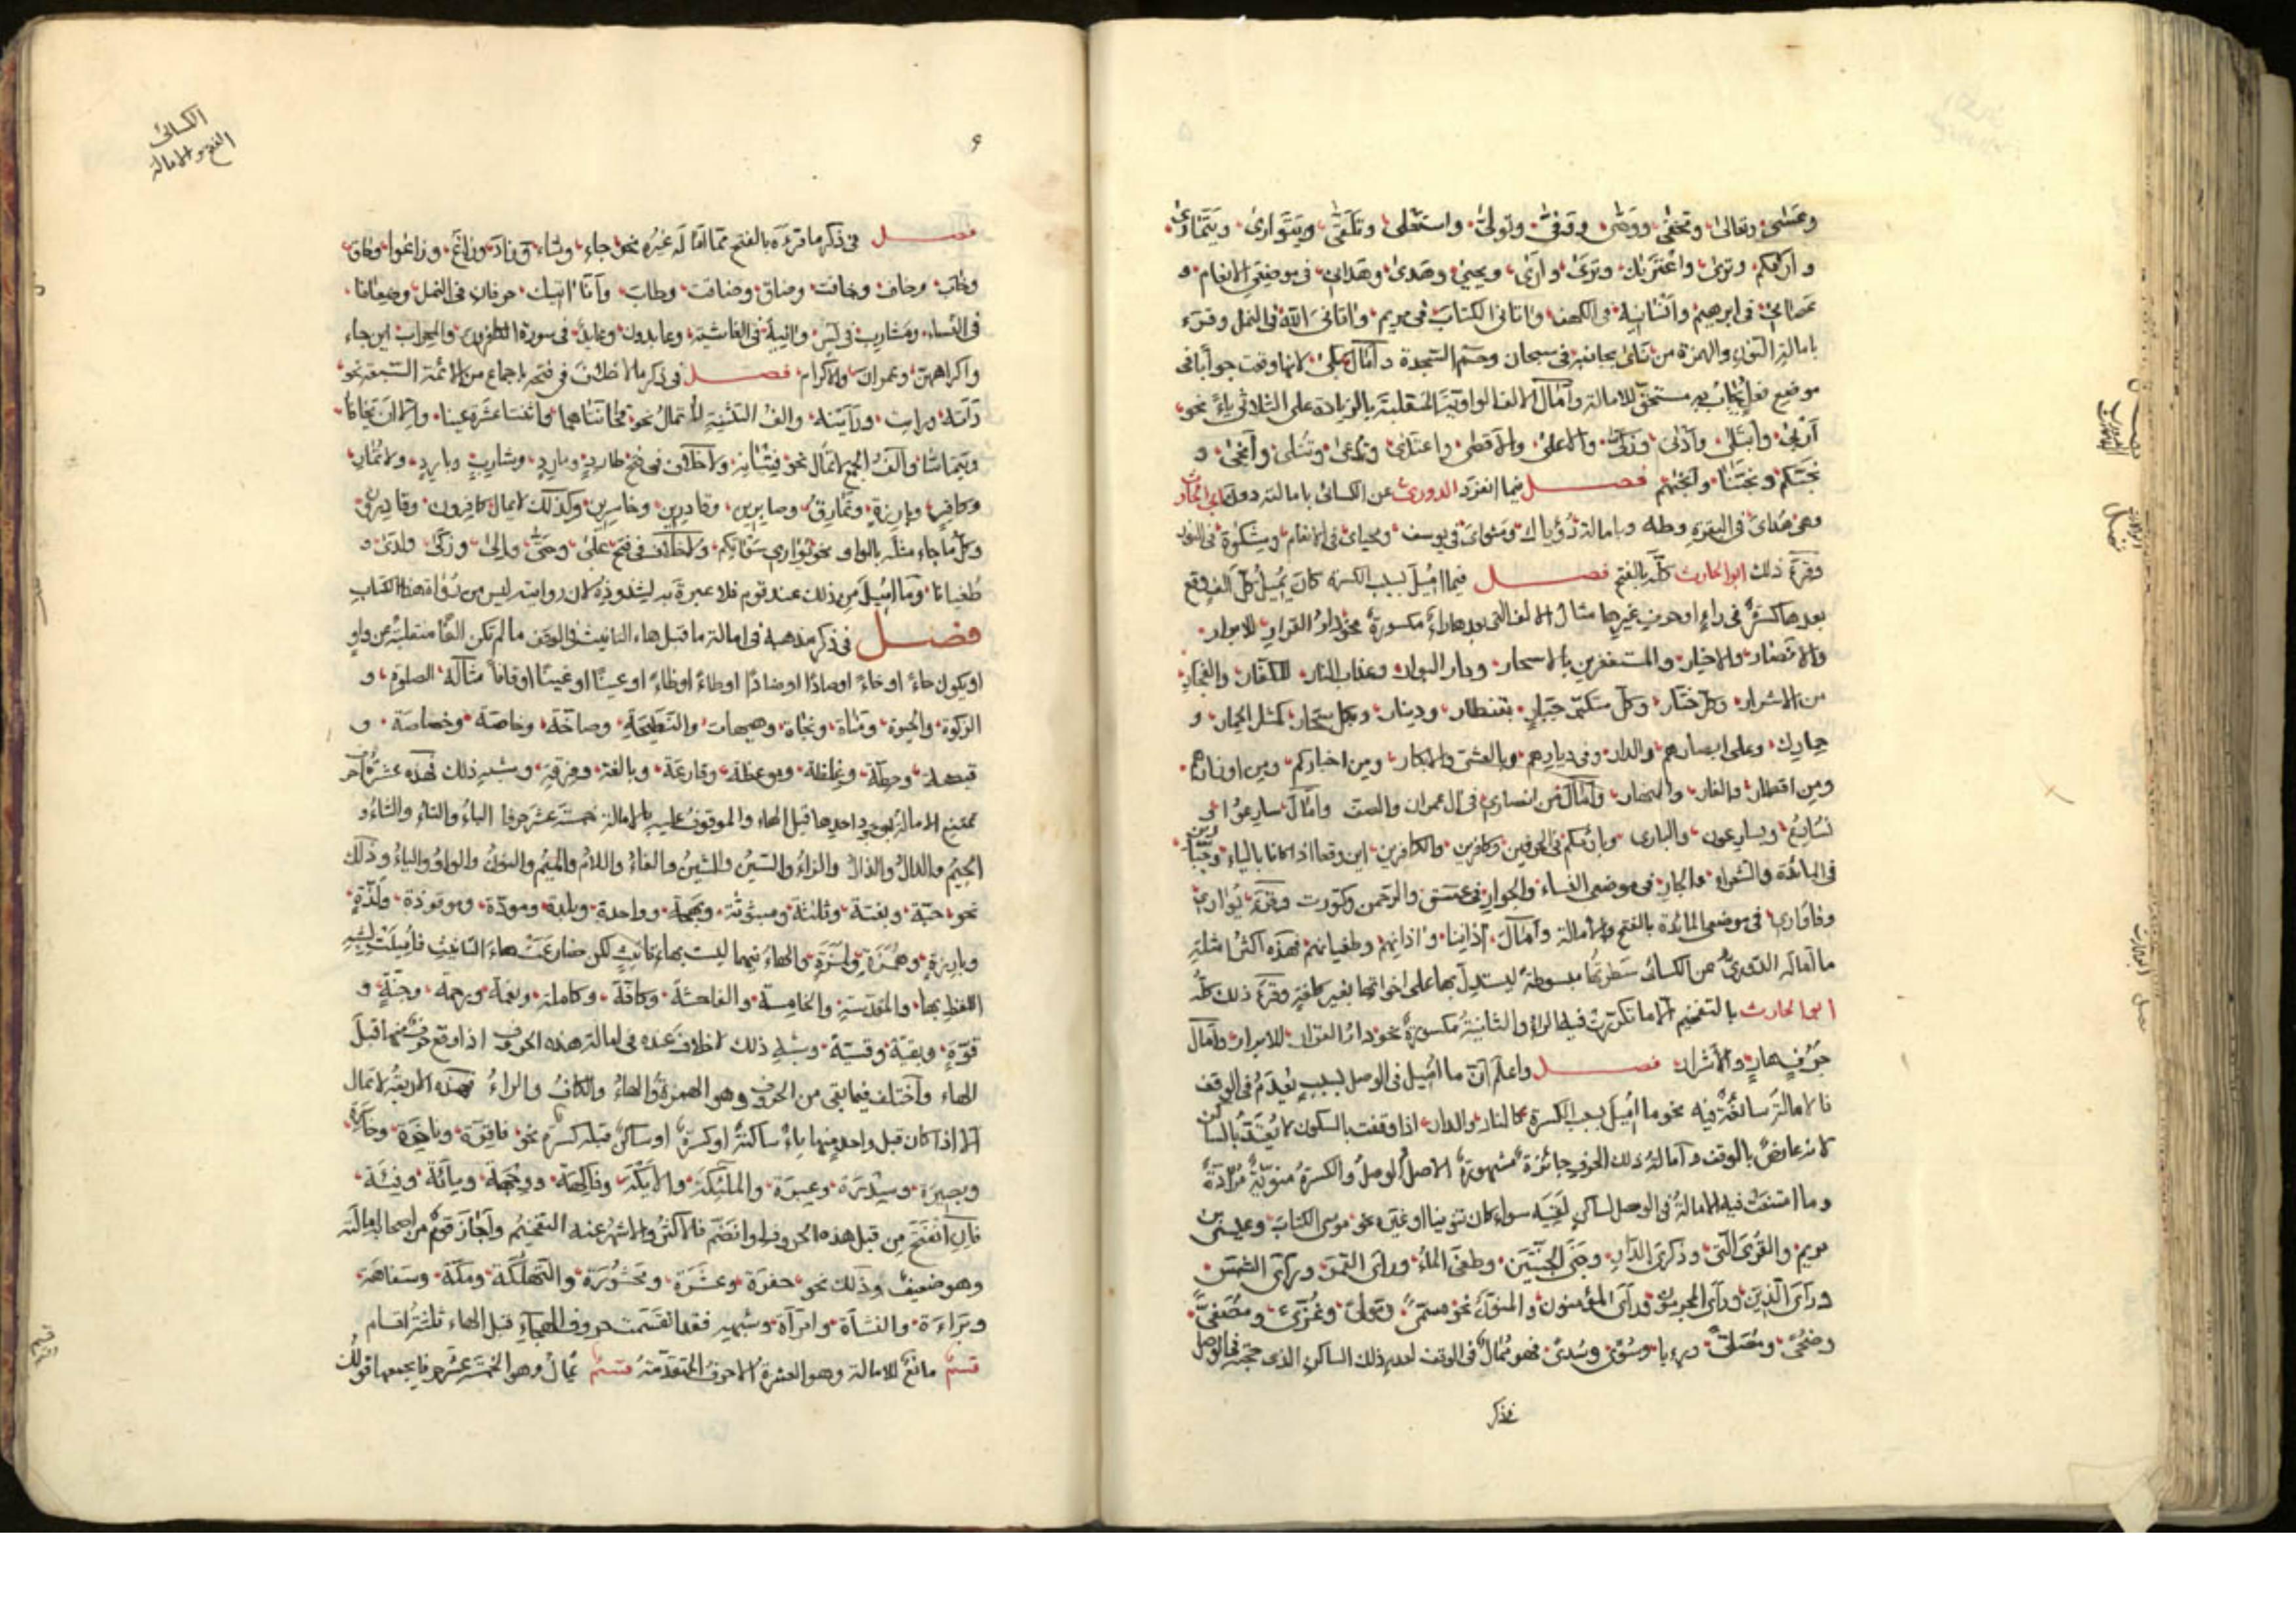 وعسى وتعالى وتخفى ووصى وتوفى وتولى واستعلى وتلقى ويتوارى ويتمارى
واراكهم وترى واعتريك وترى وارى ويحيى وهدى وهداني في موضعي الانعام و
عصاني في ابرهيم وانسانيه في الكهف واتاني الكتاب في مريم واتاني الله في النمل وقرء
بامالة النون والهمزة من نأى بجانبه في سبحان وحم السجدة وامال بلى لانها وقعت جوابا في
موضع فعل يجاب به مستحق للامالة وامال الالف الواوية المنقلبة بالزيادة على الثلاثي ياء نحو
ازكى وابتلى وادنى وزكى والاعلى والاقصى واعتدى وتدعى وتتلى وانجى و
نجيكم ونجينا وانجيهم فصل فيما انفرد الدوري عن الكسائي بامالته دون ابي الحارث
وهي هداي في البقرة وطه وبامالة رؤياك ومثواي في يوسف ومحياي في الانعام ومشكوة في النور
وقرء ذلك ابو الحارث كله بالفتح فصل فيما اميل لسبب الكسرة كان يميل كل الف وقع
بعدها كسرة في راء او حرف غيرها مثال الالف التي بعدها راء مكسورة نحو دار القرار للابرار
والانصار والاخيار والمستغفرين بالاسحار ودار البوار وعذاب النار للكفار والفجار
من الاشرار وكل ختار وكل متكبر جبار بقنطار ودينار وبكل سحار كمثل الحمار و
حمارك وعلى ابصارهم والدار وفي ديارهم وبالعشي والابكار ومن اخباركم ومن اوزارهم
ومن اقطار والغار والنهار وامال من انصاري في ال عمران والصف وامال سارعوا الى
نسارع ويسارعون والباري وبارئكم في الحرفين وكافرين والكافرين اين وقعا اذا كانا بالياء وجبارين
في المائدة والشعراء والجار في موضعي النساء والجوار في عسق والرحمن وكورت وقرء يواري
وفاواري في موضعي المائدة بالفتح والامالة وامال اذاننا واذانهم وطغيانهم فهذه اكثر امثلة
ما اماله الدوري عن الكسائي سطرتها مبسوطة ليستدل بها على اخواتها بغير كلفة وقرء ذلك كله
ابو الحارث بالتفخيم الا ما تكررت فيه الراء والثانية مكسورة نحو دار القرار للابرار وامال
جرف هار والاشرار فصل واعلم ان ما اميل في الوصل لسبب يعدم في الوقف
فالامالة سائغة فيه نحو ما اميل بسبب الكسرة كالنار والدار اذا وقفت بالسكون لا يعتد بالساكن
لانه عارض بالوقف وامالة ذلك الحرف جائزة مشهورة الاصل الوصل والكسرة منوية مرادة
وما امتنعت فيه الامالة في الوصل لساكن لقيه سواء كان تنوينا او غيره نحو موسى الكتاب وعيسى بن
مريم والقرى التي وذكرى الدار وجنى الجنتين وطغى الماء وراى القمر وراى الشمس
وراى الذين وراى المجرمون وراى المؤمنون والمنون نحو مسمى ومولى وغزى ومصفى
وضحى ومصلى وربا وسوى وسدى فهو ممال في الوقف لعدم ذلك الساكن الذي حجبه في الوصل
فى ذكر
الكسائي
الفتح والامالة
٩
فصل في ذكر ما قرءه بالفتح مما اماله غيره نحو جاء وشاء وزاد وزاغ وزاغوا وحاق
وخاب وخاف وخافت وضاق وضاقت وطاب وانا اتيك حرفان في النمل وضعافا
في النساء ومشارب في يس وانية في الغاشية وعابدون وعابد في سورة الكفرون والمحراب اين جاء
واكراههن وعمران والاكرام فصل في ذكر ما لا خلاف في فتحه باجماع من الائمة السبعة نحو
والف التثنية لا تمال نحو فخانتاهما واثنتا عشرة عينا والا ان يخافا
ويتماسا والف الجمع لا تمال نحو فتيانه ولا خلاف في فتح طارد ومارد وشارب وبارد ولا تمار
وكافر وبارزة ونمارق وصابرين وقادرين وخاسرين وكذلك لا يمال كافرون وقادرون
وكل ما جاء مثله بالواو نحو يواري سواتكم ولا خلاف في فتح على وحتى والى وزكى ولدى و
طغيانا وما اميل من ذلك عند قوم فلا عبرة به لشذوذه لان روايته ليس من رواة هذا الكتاب
فصل في ذكر مذهبه في امالة ما قبل هاء التانيث في الوقف ما لم تكن الفا منقلبة عن واو
او يكون حاء او خاء او صادا او ضادا او طاء او ظاء او عينا او غينا او قافا مثاله الصلوة و
الزكوة والحيوة ومناة ونجاة وهيهات والنطيحة وصاخة وخاصة وخصاصة و
قبضة وحطة وغلظة وموعظة وقارعة وبالغة وفرقة وشبه ذلك فهذه عشرة احرف
تمتنع الامالة بوجود احدها قبل الهاء والموقوف عليه بالامالة خمسة عشر حرفا الباء والتاء والثاء و
الجيم والدال والذال والزاء والسين والشين والفاء واللام والميم والنون والواو والياء وذلك
نحو حبة وبغتة وثلثة ومبثوثة وبهجة وواحدة وبلدة ومودة وموقوذة ولذة
وبارزة وهمزة ولمزة والهاء فيهما ليست بهاء تانيث لكن ضارعت هاء التانيث فاميلت لشبه
اللفظ بها والمقدسة والخامسة والفاحشة وكافة وكاملة ونعمة ورحمة وجنة و
قوة وبقية وقسية وشبه ذلك لا خلاف عنه في امالة هذه الحروف اذا وقع حرف منها قبل
الهاء واختلف فيما بقي من الحروف وهو الهمزة والهاء والكاف والراء فهذه الاربعة لا تمال
الا اذا كان قبل واحد منها ياء ساكنة او كسرة او ساكن قبله كسرة نحو فاقرة وناخرة وحافرة
وبصيرة وسدرة وعبرة والملئكة والايكة وفاكهة ووجهة ومائة وفئة
فان انفتح من قبل هذه الحروف او انضم فالاكثر والاشهر عنه التفخيم واجاز قوم من اصحابه امالته
وهو ضعيف وذلك نحو حفرة وعشرة ومحشورة والتهلكة ومكة وسفاهة
وبراءة والنشأة وامرأة وشبهه فقد انقسمت حروف الهجاء قبل الهاء ثلثة اقسام
قسم مانع للامالة وهو العشرة الاحرف المتقدمة قسم يمال وهو الخمسة عشر حرفا يجمعها قولك